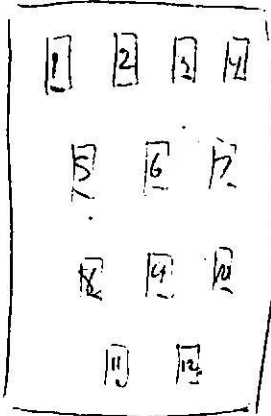 1 2 3 4
5 6 7
8 9 10
11 12